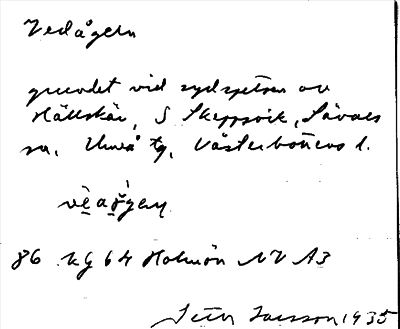 Vedågern
grundet vid sydspetsen av
Hällskär, S Skeppsvik, Sävars
sn, Umeå tg, Västerbottens l.
86 kg 64 Holmön NV A3
1935